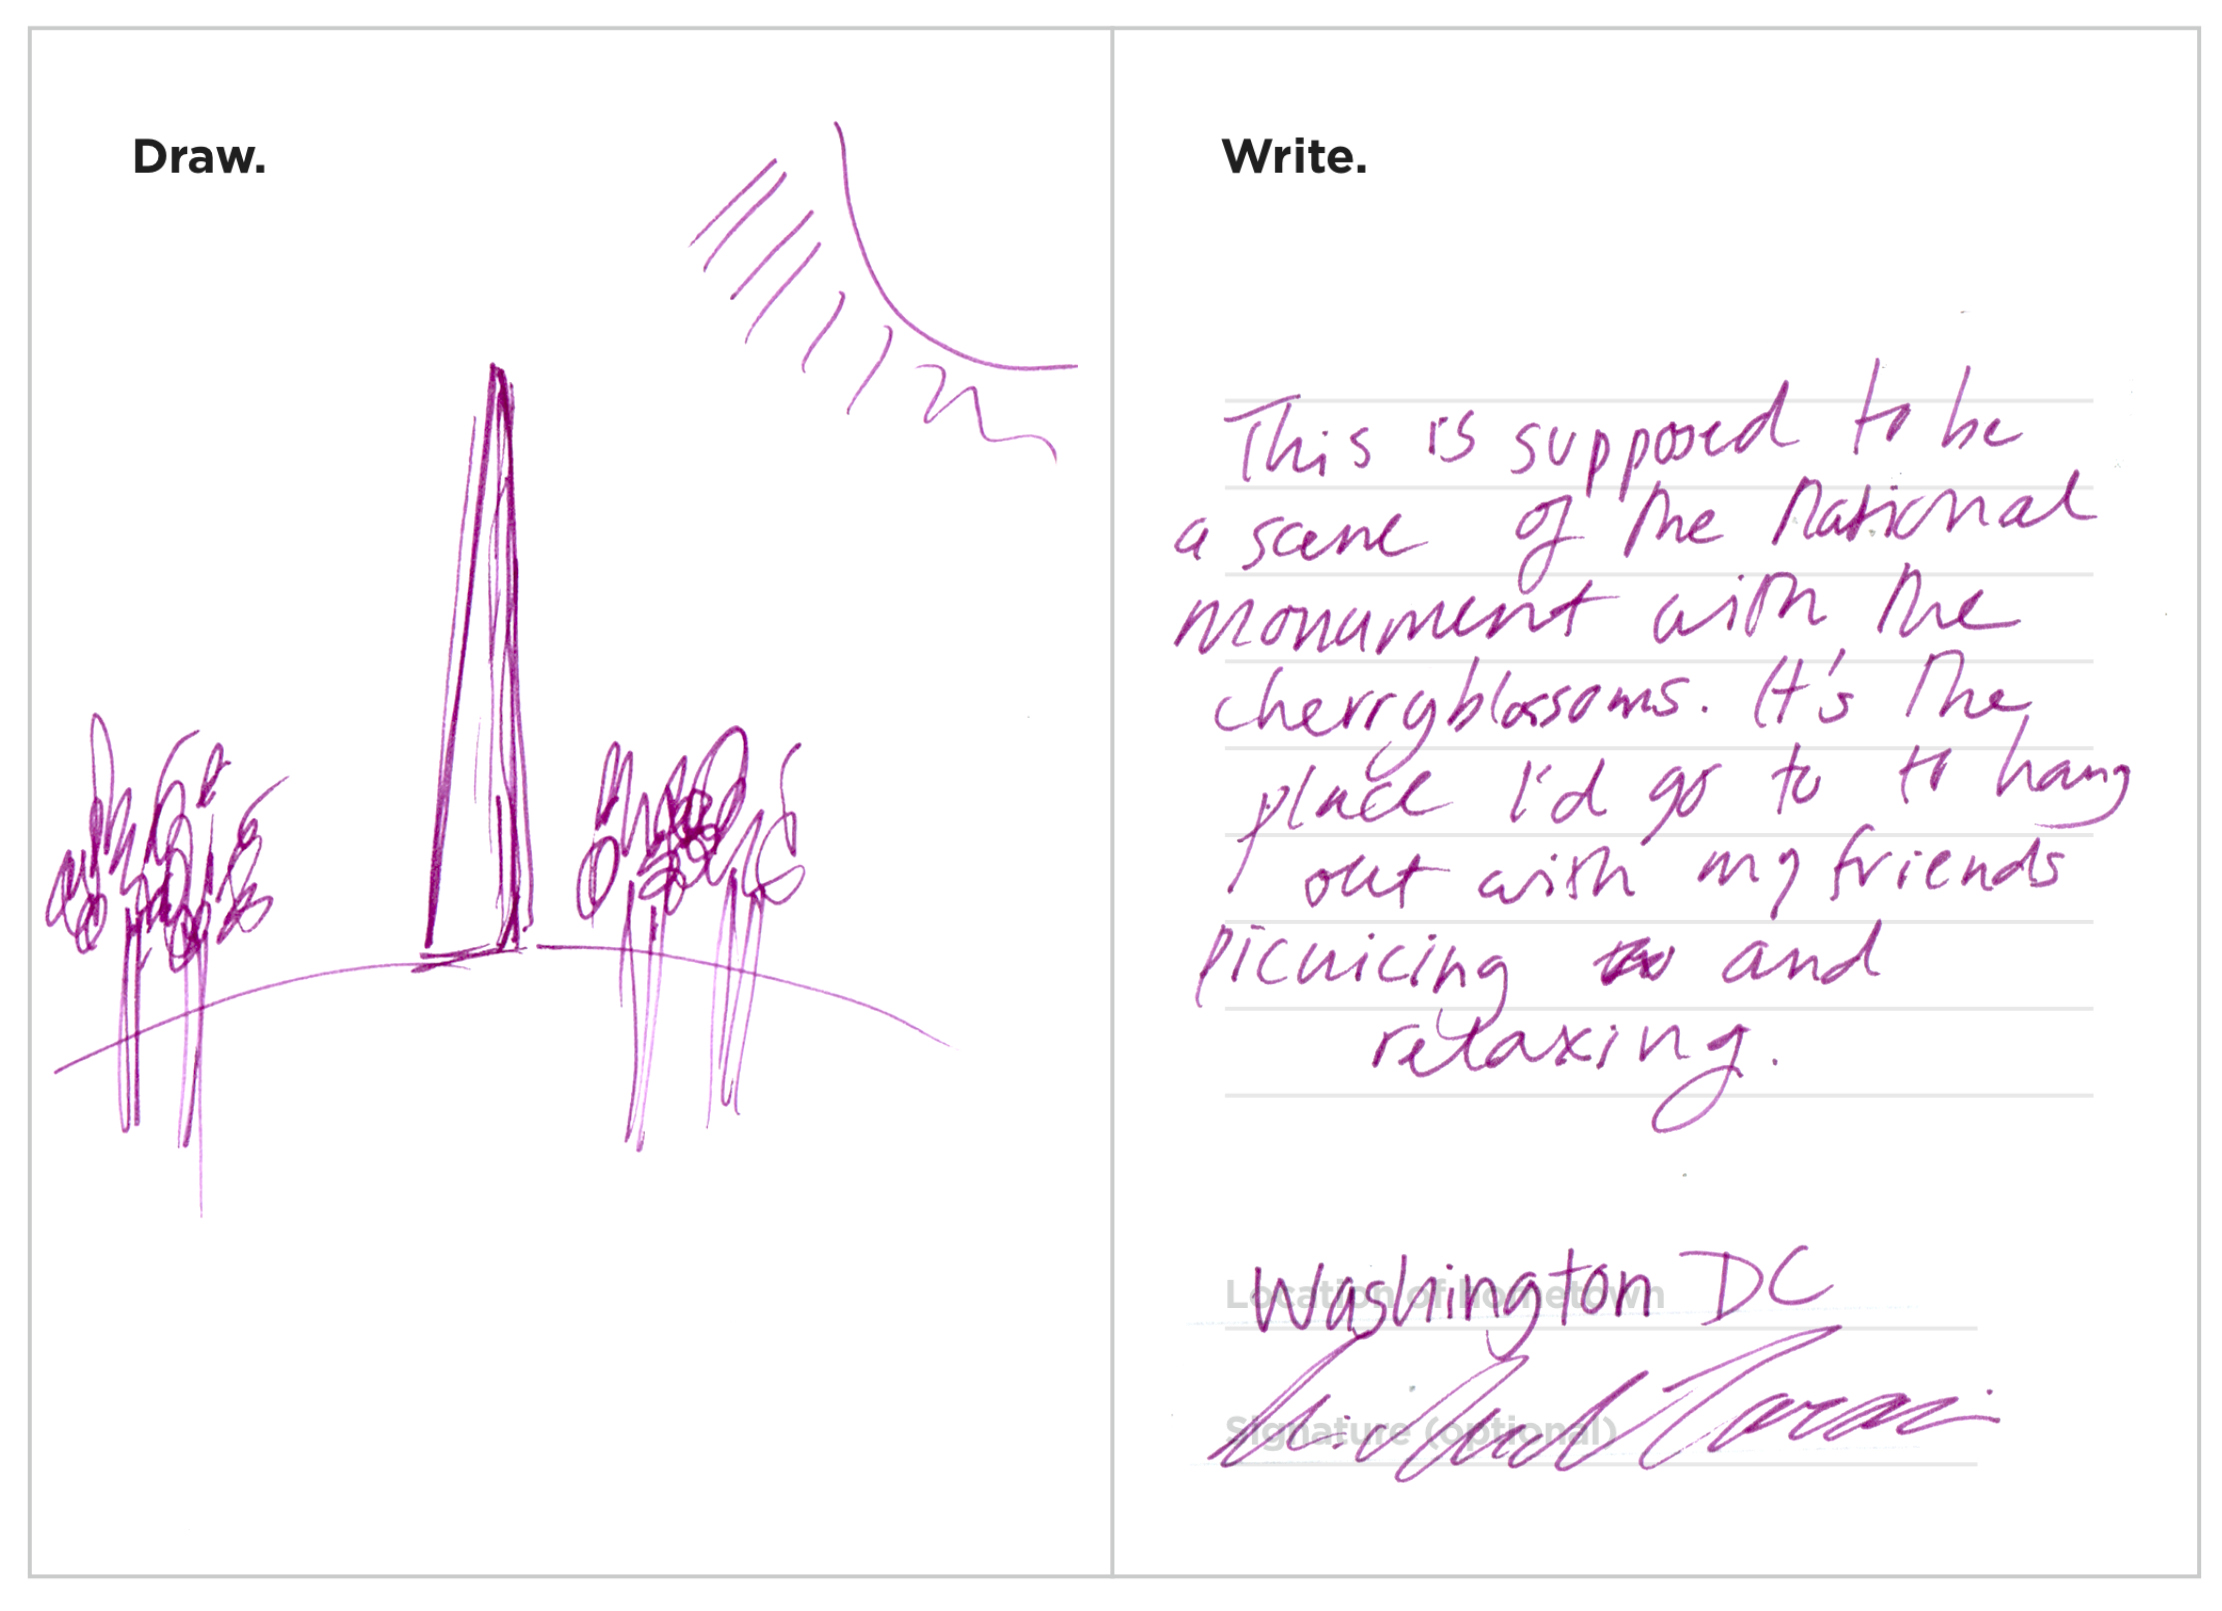 Draw.
Write.
This is supposed to be
a scene of the National
Monument with the
cherryblossoms. It's the
place I'd go to to hang
out with my friends
picnicing and
relaxing.
Location of hometown
Washington DC
Signature (optional)